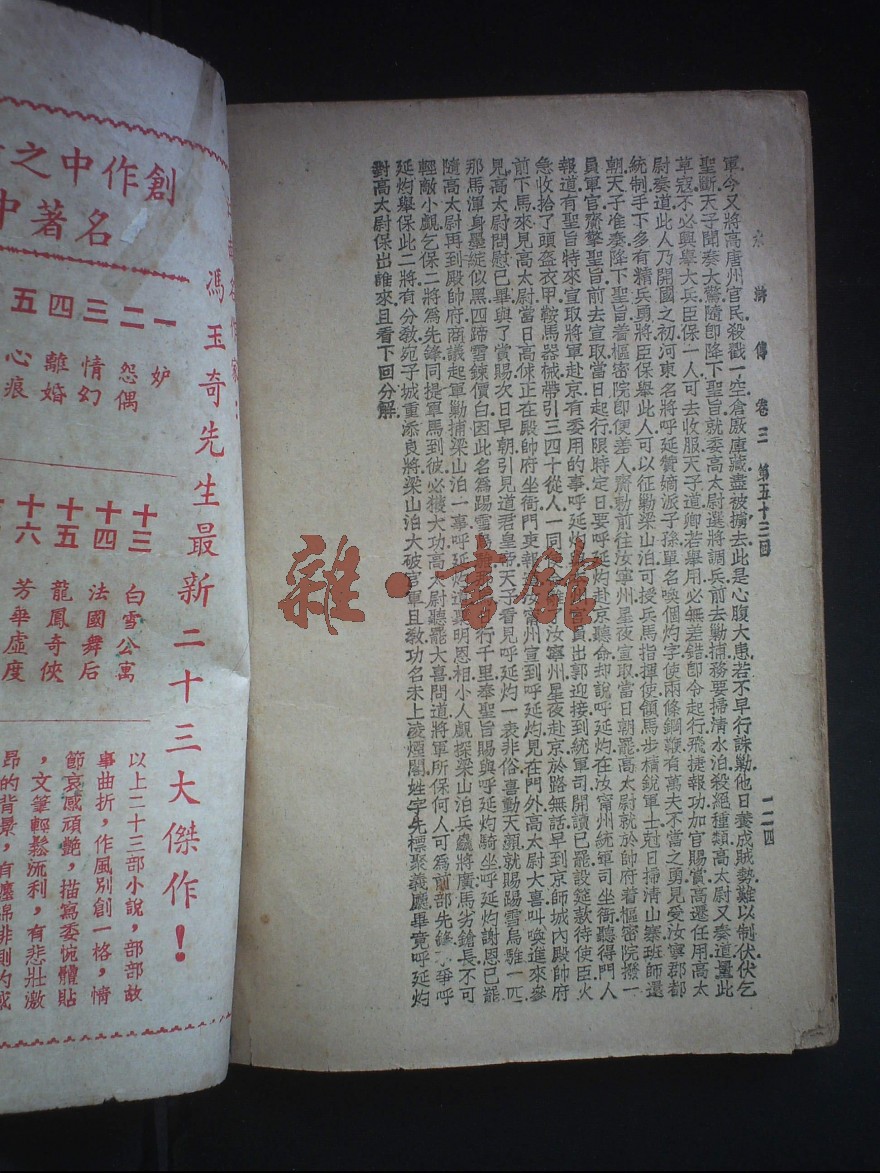 水滸傳 卷三 第五十三回 一二四
軍今又將高唐州官民殺戮一空倉廒庫藏盡被擄去此是心腹大患若不早行誅勦他日養成賊勢難以制伏伏乞
聖斷天子聞奏大驚隨卽降下聖旨就委高太尉選將調兵前去勦捕務要掃清水泊殺絕種類高太尉又奏道量此
草寇不必興舉大兵臣保一人可去收服天子道卿若舉用必無差錯卽令起行飛捷報功加官賜賞高遷任用高太
尉奏道此人乃開國之初河東名將呼延贊嫡派子孫單名喚個灼字使兩條鋼鞭有萬夫不當之勇見受汝寧郡都
統制手下多有精兵勇將臣保舉此人可以征勦梁山泊可授兵馬指揮使領馬步精銳軍士尅日掃清山寨班師還
朝天子准奏降下聖旨着樞密院卽便差人齎勅前往汝寧州星夜宣取當日朝罷高太尉就於帥府着樞密院撥一
員軍官齎擎聖旨前去宣取當日起行限特定日要呼延灼赴京聽命却說呼延灼在汝甯州統軍司坐衙聽得門人
報道有聖旨特來宣取將軍赴京有委用的事呼延灼 官員出郭迎接到統軍司開讀已罷設筵款待使臣火
急收拾了頭盔衣甲鞍馬器械帶引三四十從人一同 汝寧州星夜赴京於路無話早到京師城內殿帥府
前下馬來見高太尉當日高俅正在殿帥府坐衙門吏報 甯州宣到呼延灼見在門外高太尉大喜叫喚進來參
見高太尉問慰已畢與了賞賜次日早朝引見道君皇帝天子看見呼延灼一表非俗喜動天顏就賜踢雪烏騅一匹
那馬渾身墨綻似黑四蹄雪鍊價白因此名爲踢雪烏 行千里奉聖旨賜與呼延灼騎坐呼延灼謝恩已罷
隨高太尉再到殿帥府商議起軍勦捕梁山泊一事呼延灼道稟明恩相小人覷探梁山泊兵麤將廣馬劣鎗長不可
輕敵小覷乞保二將爲先鋒同提軍馬到彼必獲大功高太尉聽罷大喜問道將軍所保何人可爲前部先鋒不爭呼
延灼舉保此二將有分敎宛子城重添良將梁山泊大破官軍且敎功名未上凌煙閣姓字先標聚義廳畢竟呼延灼
對高太尉保出誰來且看下回分解
雜·書館
馮玉奇先生最新二十三大傑作！
創作中之
名著中
一 妒
二 怨偶
三 情幻
四 離婚
五 心痕
十三 白雪公寓
十四 法國舞后
十五 龍鳳奇俠
十六 芳華虛度
以上二十三部小說，部部故
事曲折，作風別創一格，情
節哀感頑艷，描寫委婉體貼
，文筆輕鬆流利，有悲壯激
昂的背景，有